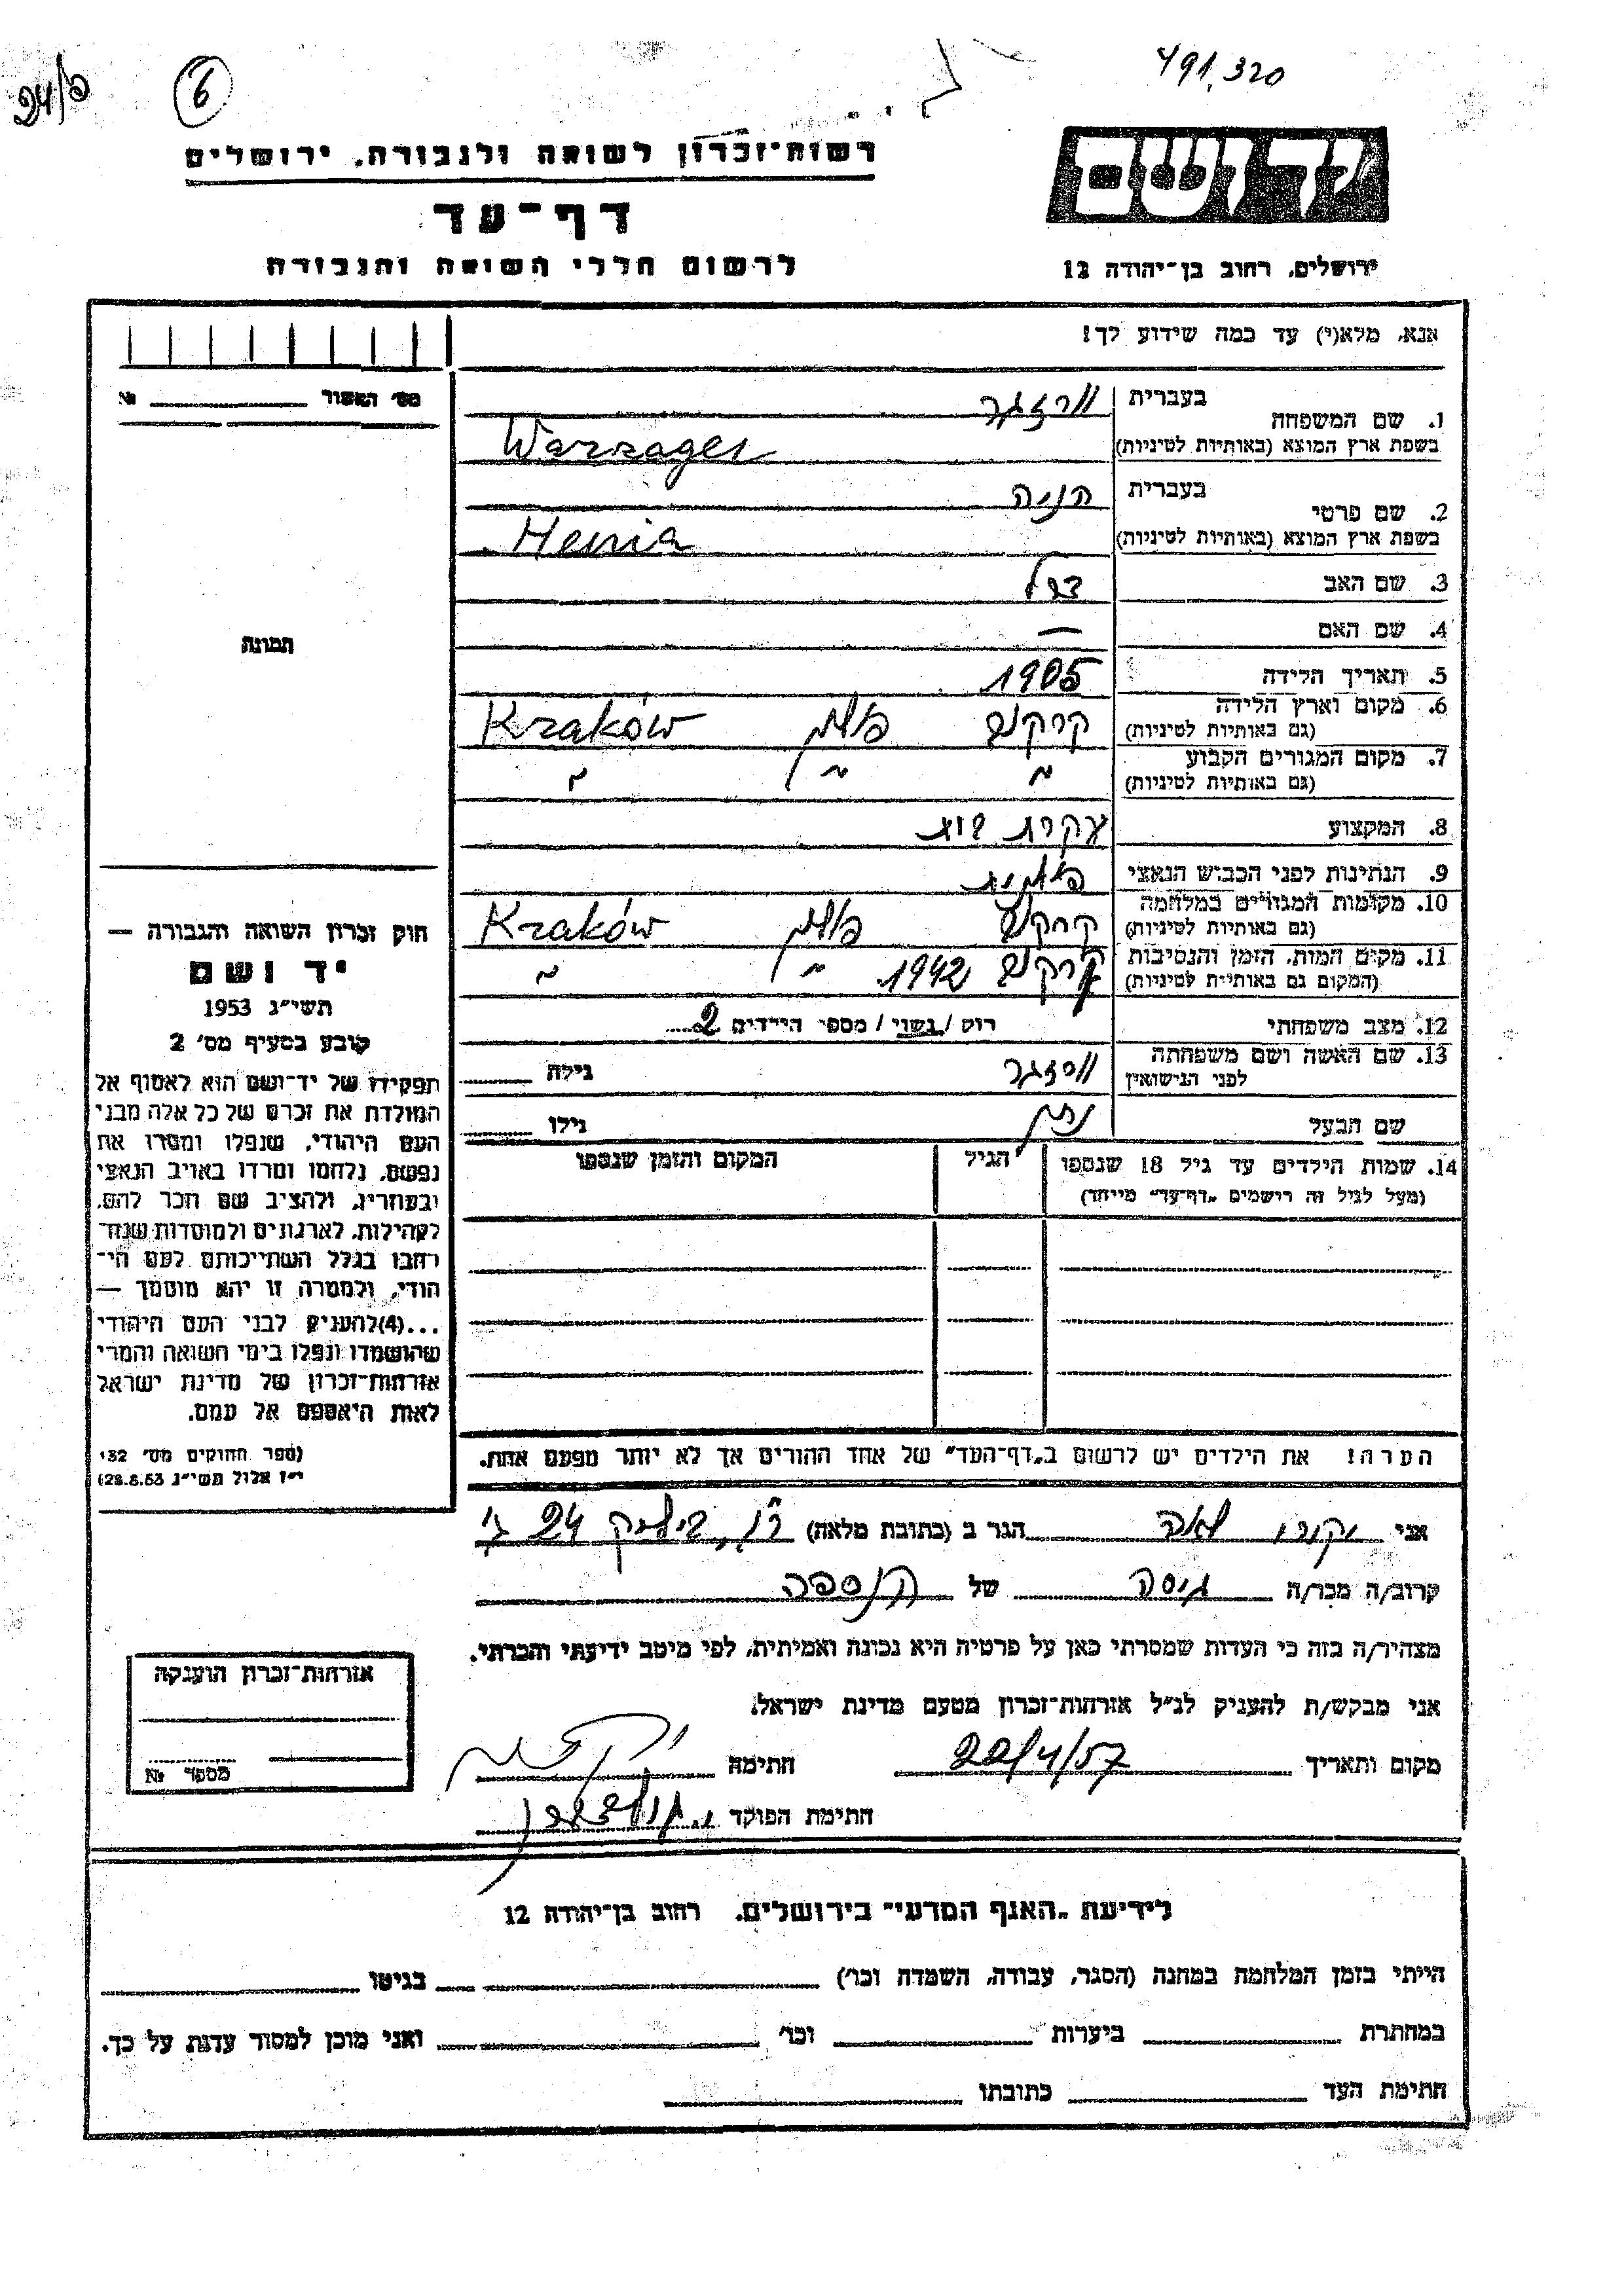 491,320
6
רשות־זכרון לשואה ולגבורה, ירושלים
דף־עד
לרשום חללי השואה והגבורה
יד ושם
ירושלים, רחוב בן־יהודה 12
אנא, מלא(י) עד כמה שידוע לך!
מס׳ האשור №
1. שם המשפחה
בעברית ורזגר
בשפת ארץ המוצא (באותיות לטיניות) Warzager
2. שם פרטי
בעברית הניה
בשפת ארץ המוצא (באותיות לטיניות) Henia
3. שם האב
4. שם האם —
5. תאריך הלידה 1905
6. מקום וארץ הלידה קרקוב פולין Kraków
(גם באותיות לטיניות)
7. מקום המגורים הקבוע " " "
(גם באותיות לטיניות)
8. המקצוע עקרת בית
9. הנתינות לפני הכבוש הנאצי פולנית
10. מקומות המגורים במלחמה קרקוב פולין Kraków
(גם באותיות לטיניות)
11. מקום המות, הזמן והנסיבות קרקוב 1942 " "
(המקום גם באותיות לטיניות)
12. מצב משפחתי רוק / נשוי / מספר הילדים 2
13. שם האשה ושם משפחתה
לפני הנישואין ורזגר גילה
שם הבעל נתן גילו
14. שמות הילדים עד גיל 18 שנספו הגיל המקום והזמן שנספו
(מעל לגיל זה רישמים „דף־עד״ מייחד)
הערה! את הילדים יש לרשום ב„דף־העד״ של אחד ההורים אך לא יותר מפעם אחת.
תמונה
חוק זכרון השואה והגבורה —
יד ושם
תשי״ג 1953
קובע בסעיף מס׳ 2
תפקידו של יד־ושם הוא לאסוף אל
המולדת את זכרם של כל אלה מבני
העם היהודי, שנפלו ומסרו את
נפשם, נלחמו ומרדו באויב הנאצי
ובעוזריו, ולהציב שם וזכר להם,
לקהילות, לארגונים ולמוסדות שנח־
רבו בגלל השתייכותם לעם הי־
הודי, ולמטרה זו יהא מוסמך —
...(4)להעניק לבני העם היהודי
שהושמדו ונפלו בימי השואה והמרי
אזרחות־זכרון של מדינת ישראל
לאות היאספם אל עמם.
(ספר החוקים מס׳ 132
י״ז אלול תשי״ג 28.8.53)
אני לאה הגר ב (כתובת מלאה) ביאליק 24
קרוב/ה מכר/ה גיסה של הנספה
מצהיר/ה בזה כי העדות שמסרתי כאן על פרטיה היא נכונה ואמיתית, לפי מיטב ידיעתי והכרתי.
אני מבקש/ת להעניק לנ״ל אזרחות־זכרון מטעם מדינת ישראל.
מקום ותאריך 22/4/57 חתימה
חתימת הפוקד
אזרחות־זכרון הוענקה
מספר №
לידיעת „האגף המדעי״ בירושלים, רחוב בן־יהודה 12
הייתי בזמן המלחמה במחנה (הסגר, עבודה, השמדה וכו׳) בגיטו
במחתרת ביערות וכו׳ ואני מוכן למסור עדות על כך.
חתימת העד כתובתו